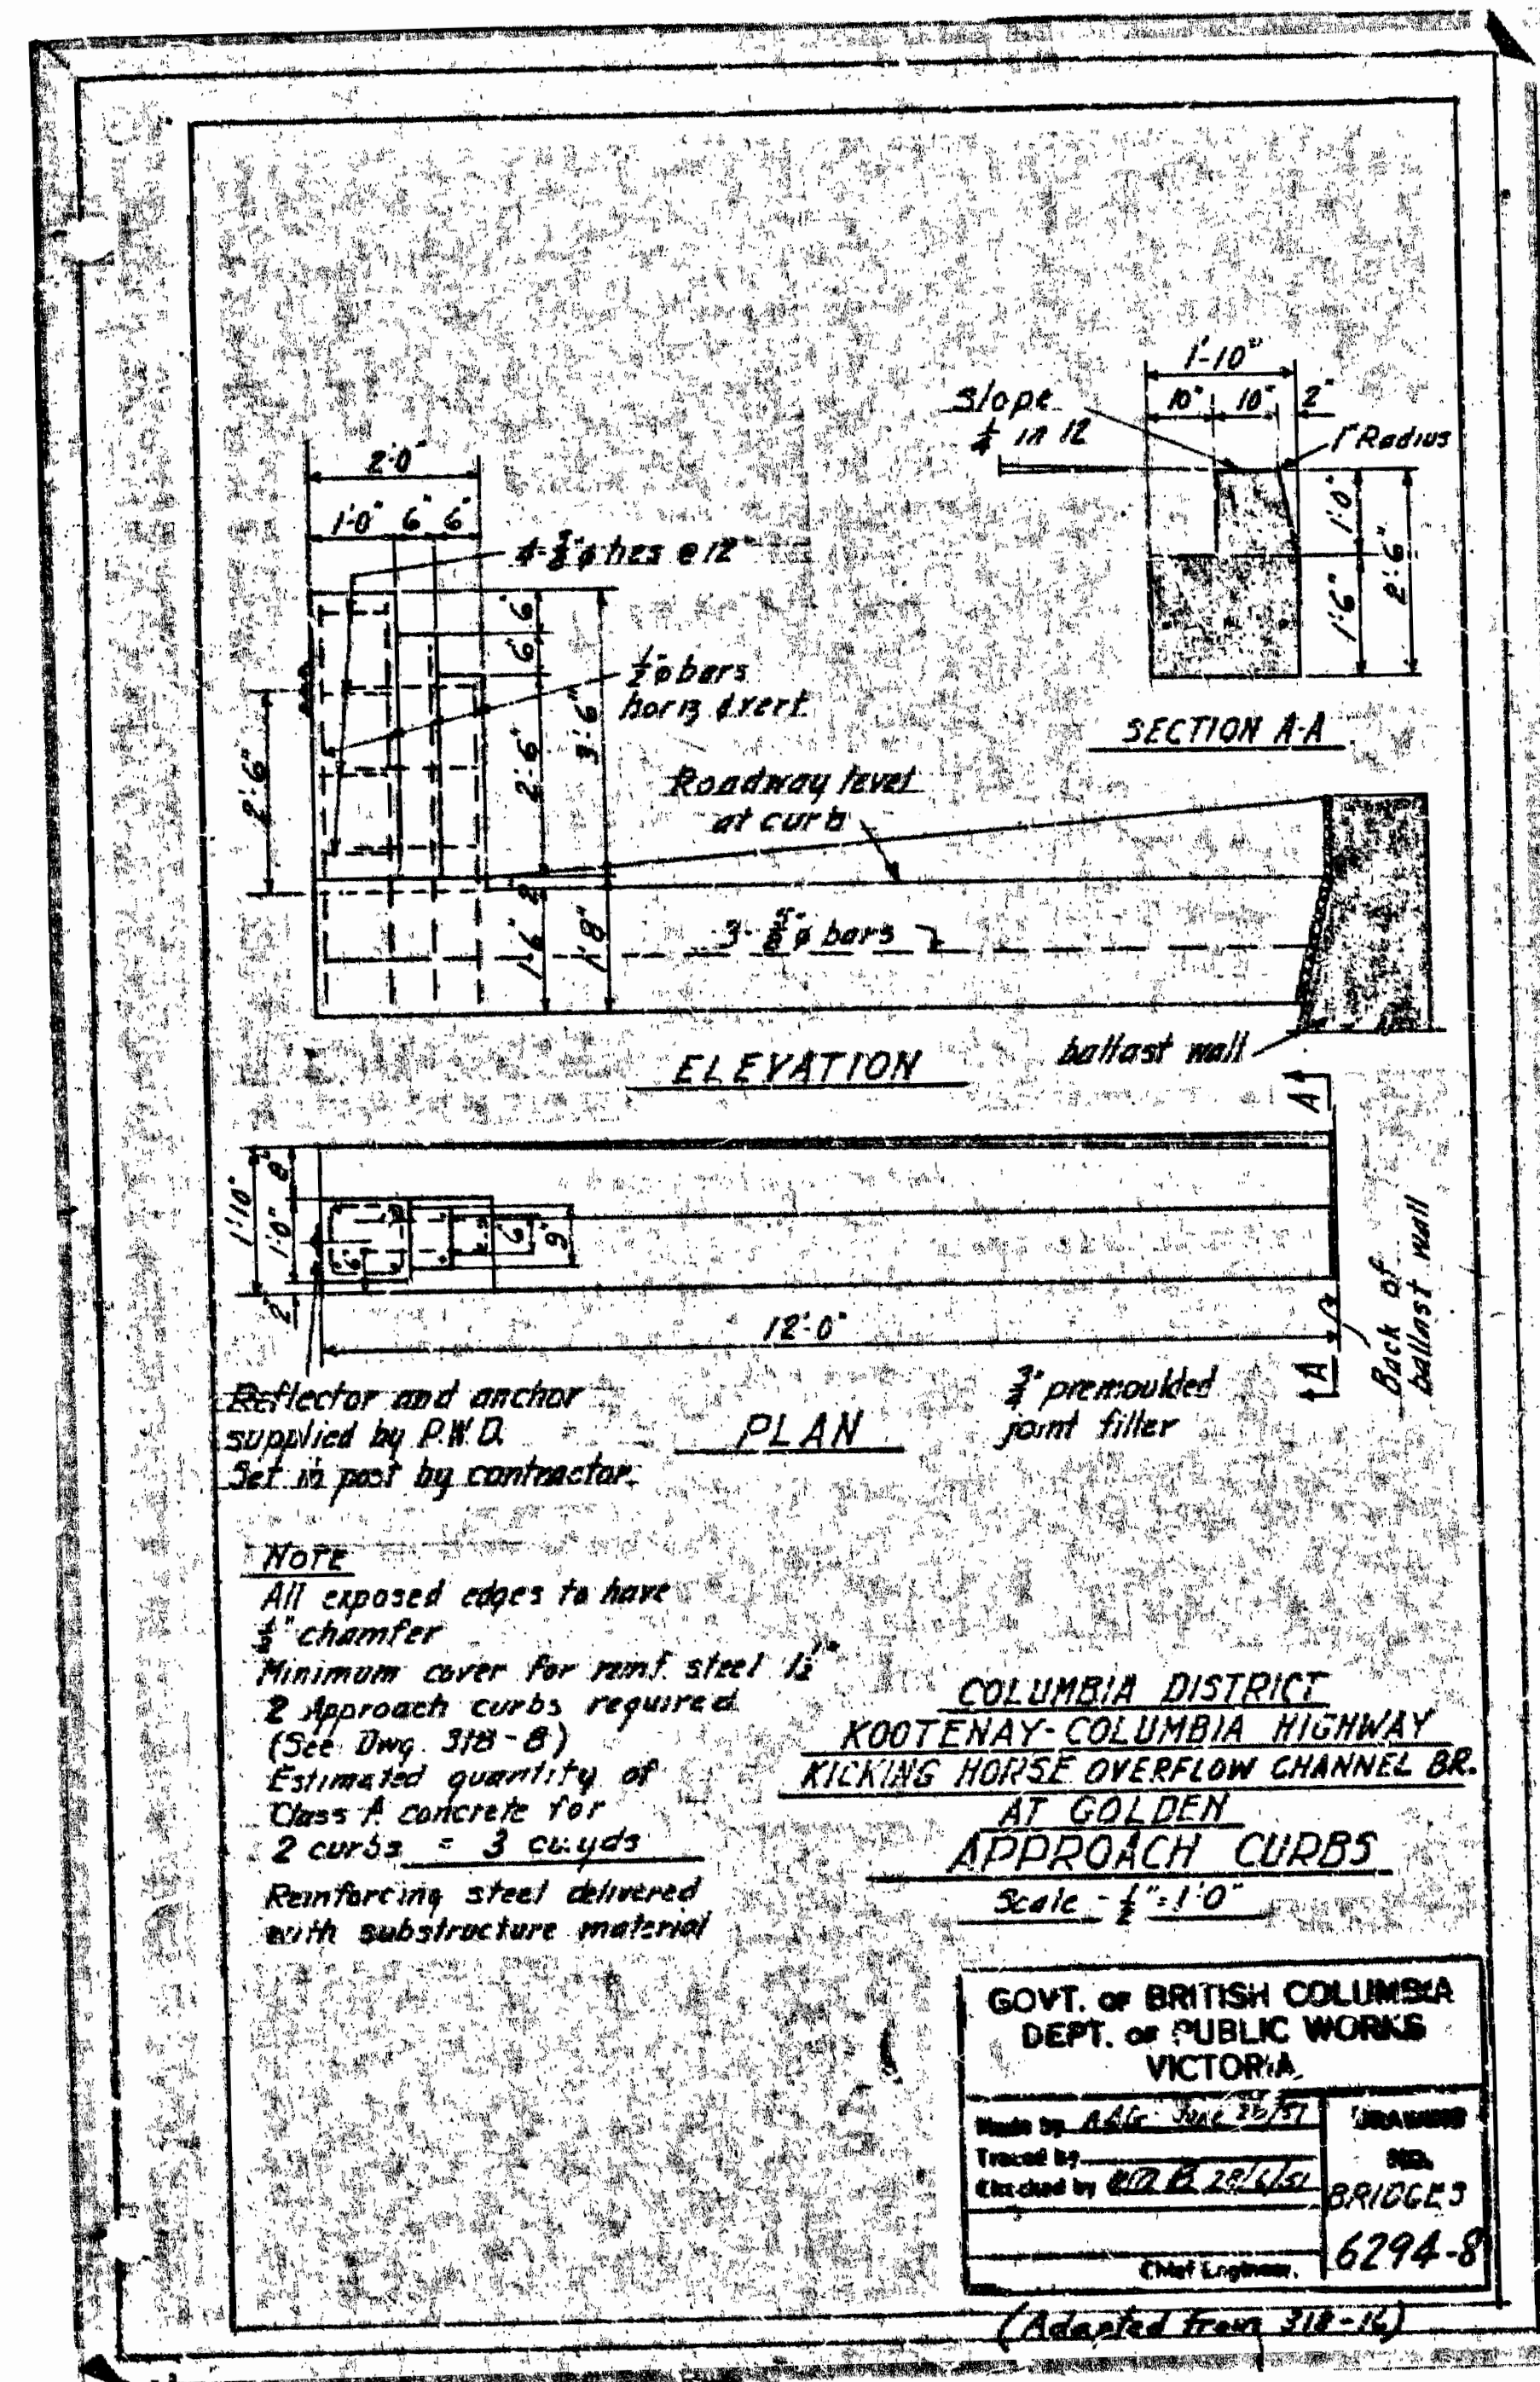 1'-10"
10" 10" 2"
Slope
1/4 in 12
1" Radius
1'-0"
1'-6"
2'-6"
SECTION A-A
2'-0"
1'-0" 6" 6"
4-3/8"ø ties @ 12"
6" 6"
1/2"ø bars
horiz & vert.
2'-6"
2'-6"
3'-6"
Roadway level
at curb
2"
1'-6"
1'-8"
3-5/8"ø bars
ELEVATION
ballast wall
A
1'-10"
8"
1'-0"
2"
6"
6"
9"
12'-0"
A
Back of
ballast wall
Reflector and anchor
supplied by P.W.D.
Set in post by contractor.
PLAN
3/4" premoulded
joint filler
NOTE
All exposed edges to have
1/2" chamfer
Minimum cover for reinf. steel 1 1/2"
2 Approach curbs required
(See Dwg. 318-8)
Estimated quantity of
Class A concrete for
2 curbs = 3 cu.yds
Reinforcing steel delivered
with substructure material
COLUMBIA DISTRICT
KOOTENAY-COLUMBIA HIGHWAY
KICKING HORSE OVERFLOW CHANNEL BR.
AT GOLDEN
APPROACH CURBS
Scale - 1/2" = 1'-0"
GOVT. OF BRITISH COLUMBIA
DEPT. OF PUBLIC WORKS
VICTORIA
Made by June
Traced by
Checked by 28/6/51
Chief Engineer.
DRAWING
NO.
BRIDGES
6294-8
(Adapted from 318-16)